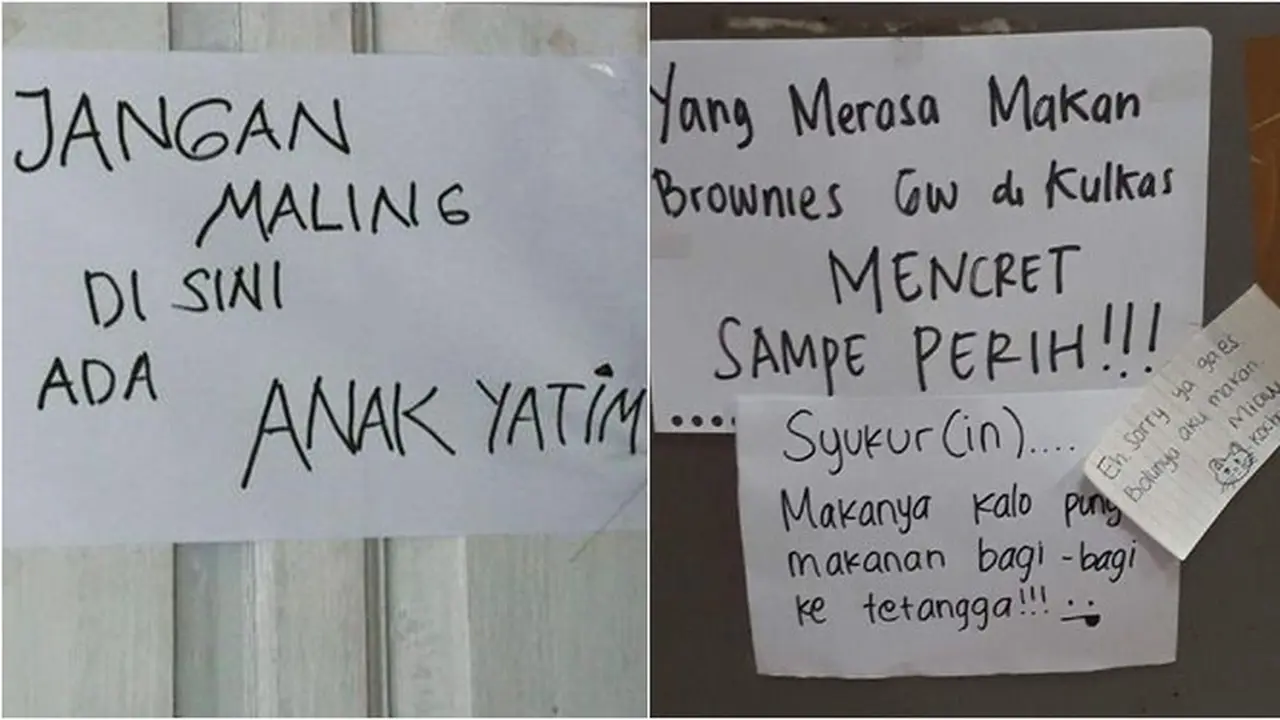 JANGAN
MALING
DI SINI
ADA
ANAK YATIM
Yang Merasa Makan
Brownies GW di Kulkas
MENCRET
SAMPE PERIH!!!
Syukur(in)....
Makanya kalo
makanan bagi-bagi
ke tetangga!!!
Eh. Sorry ya gaes
aku makan.